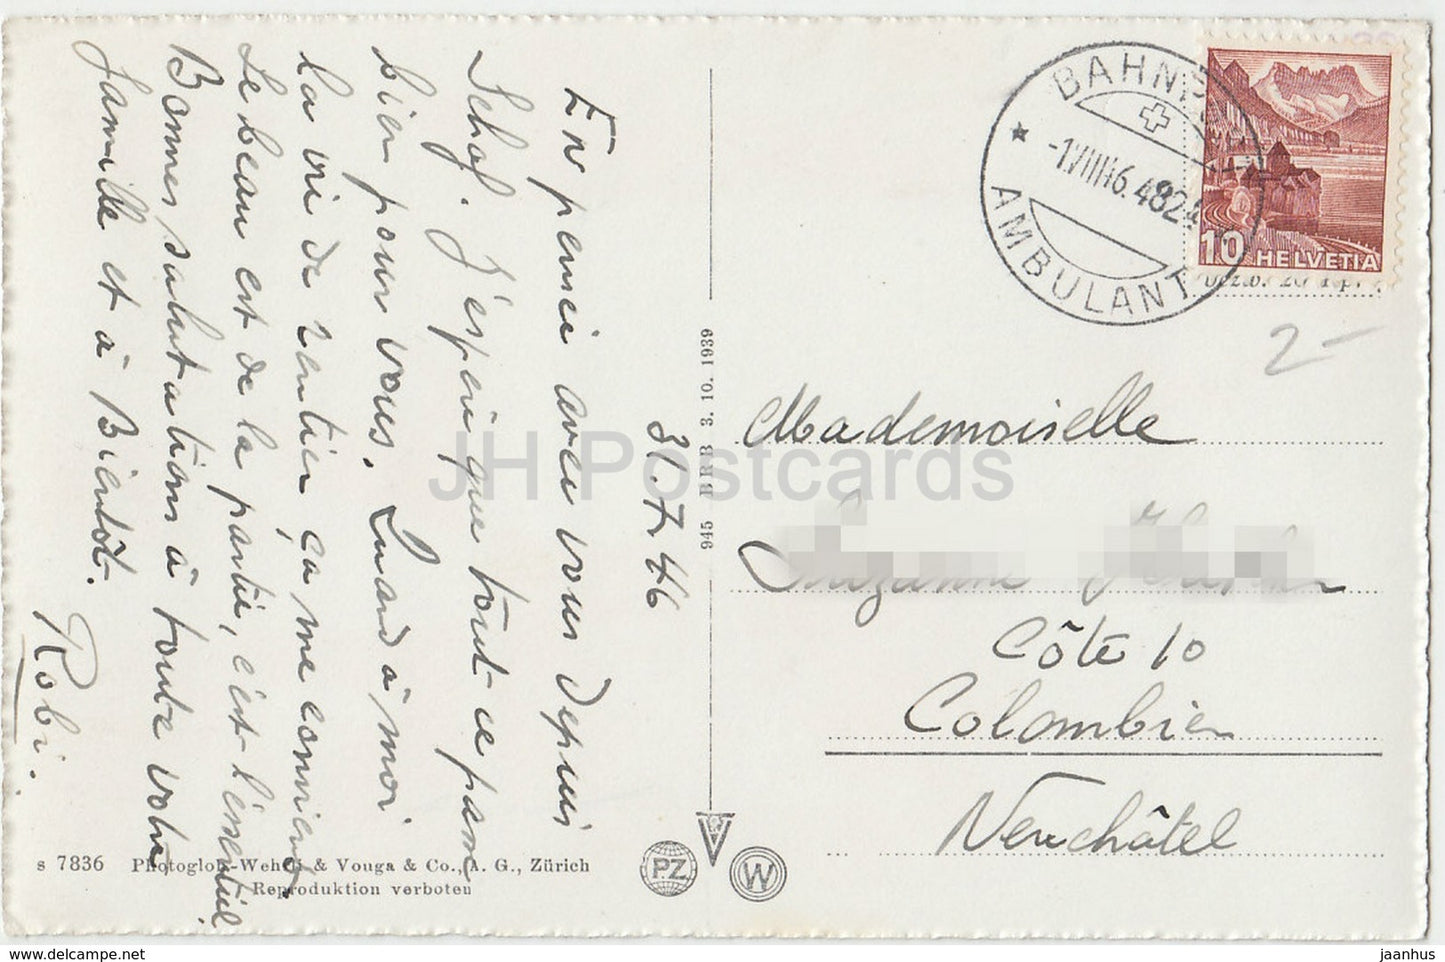 31.7.46
En pensée avec vous depuis
Schaf. J'espère que tout se passe
bien pour vous. Quand à moi
la vie de rentier ça me convient
Le beau est de la partie, c'est l'essentiel.
Bonnes salutations à toute votre
famille et à Bientôt.
Robi.
BAHNP
-1.VIII.46.-
AMBULANT
10 HELVETIA
2-
Mademoiselle
Côte 10
Colombier
Neuchâtel
945 BRB 3. 10. 1939
s 7836 Photoglob-Wehrli & Vouga & Co., A. G., Zürich
Reproduktion verboten
PZ
W
JH Postcards
www.delcampe.net
jaanhus